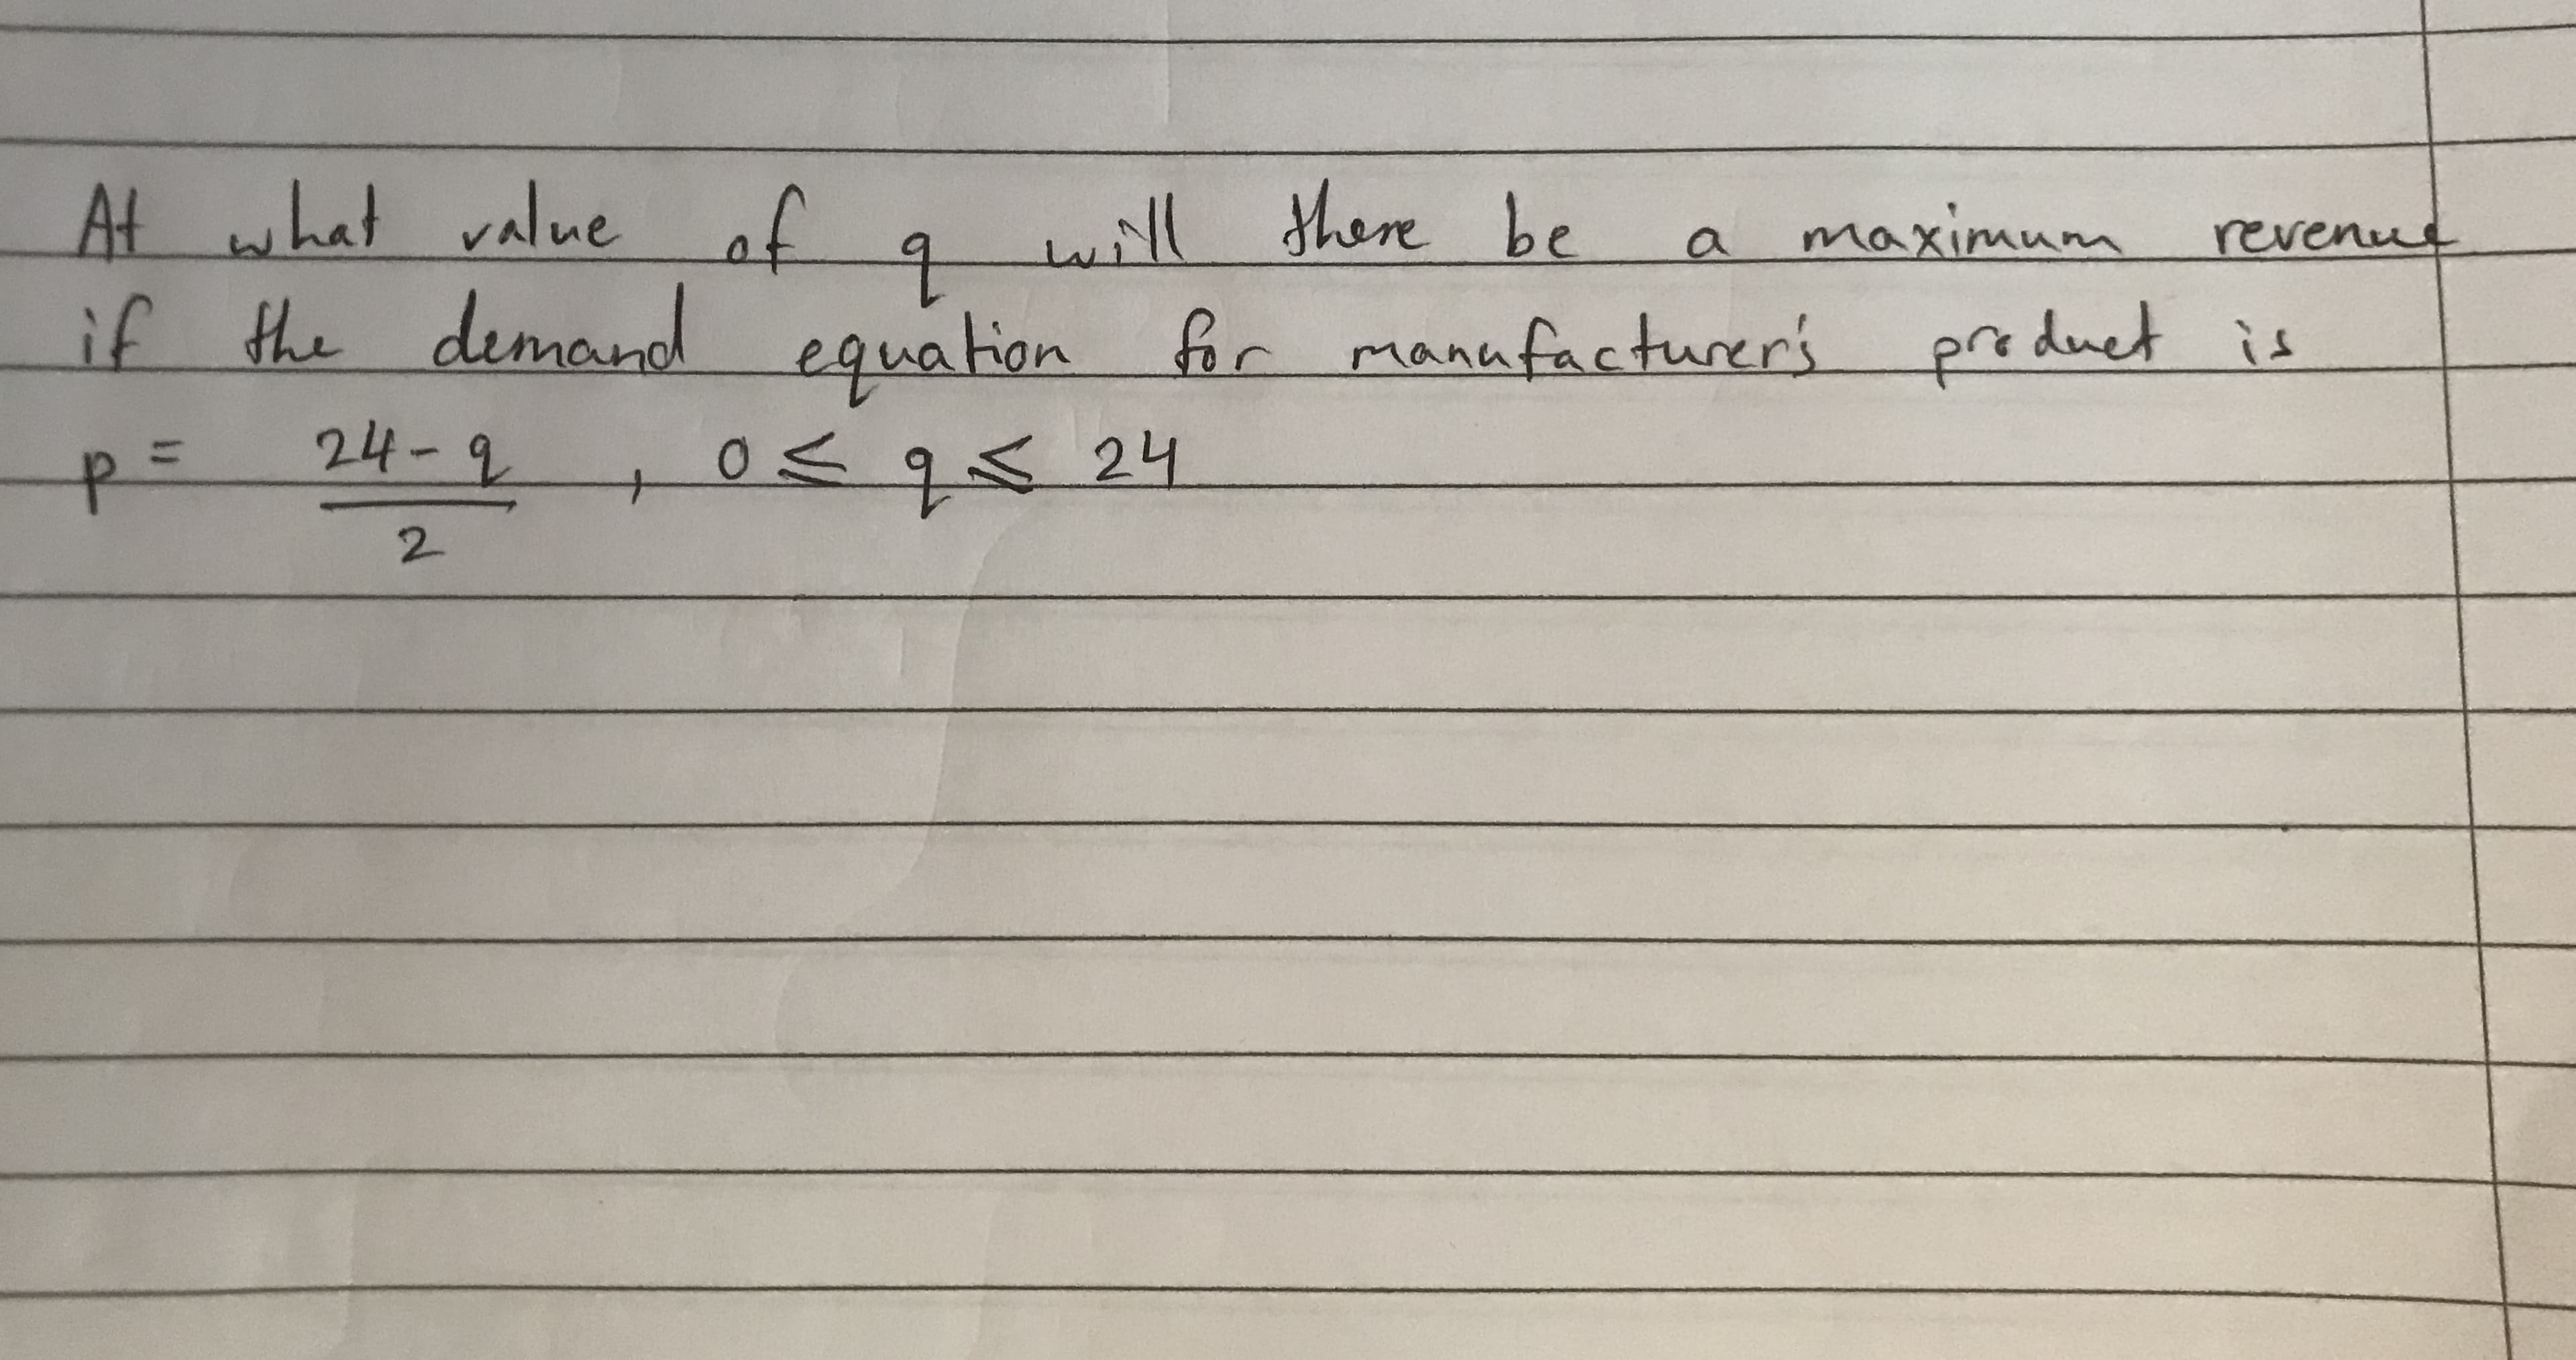 At what value of q will there be a maximum revenue
if the demand equation for manufacturer's product is
p = \frac{24-q}{2} , 0 ≤ q ≤ 24